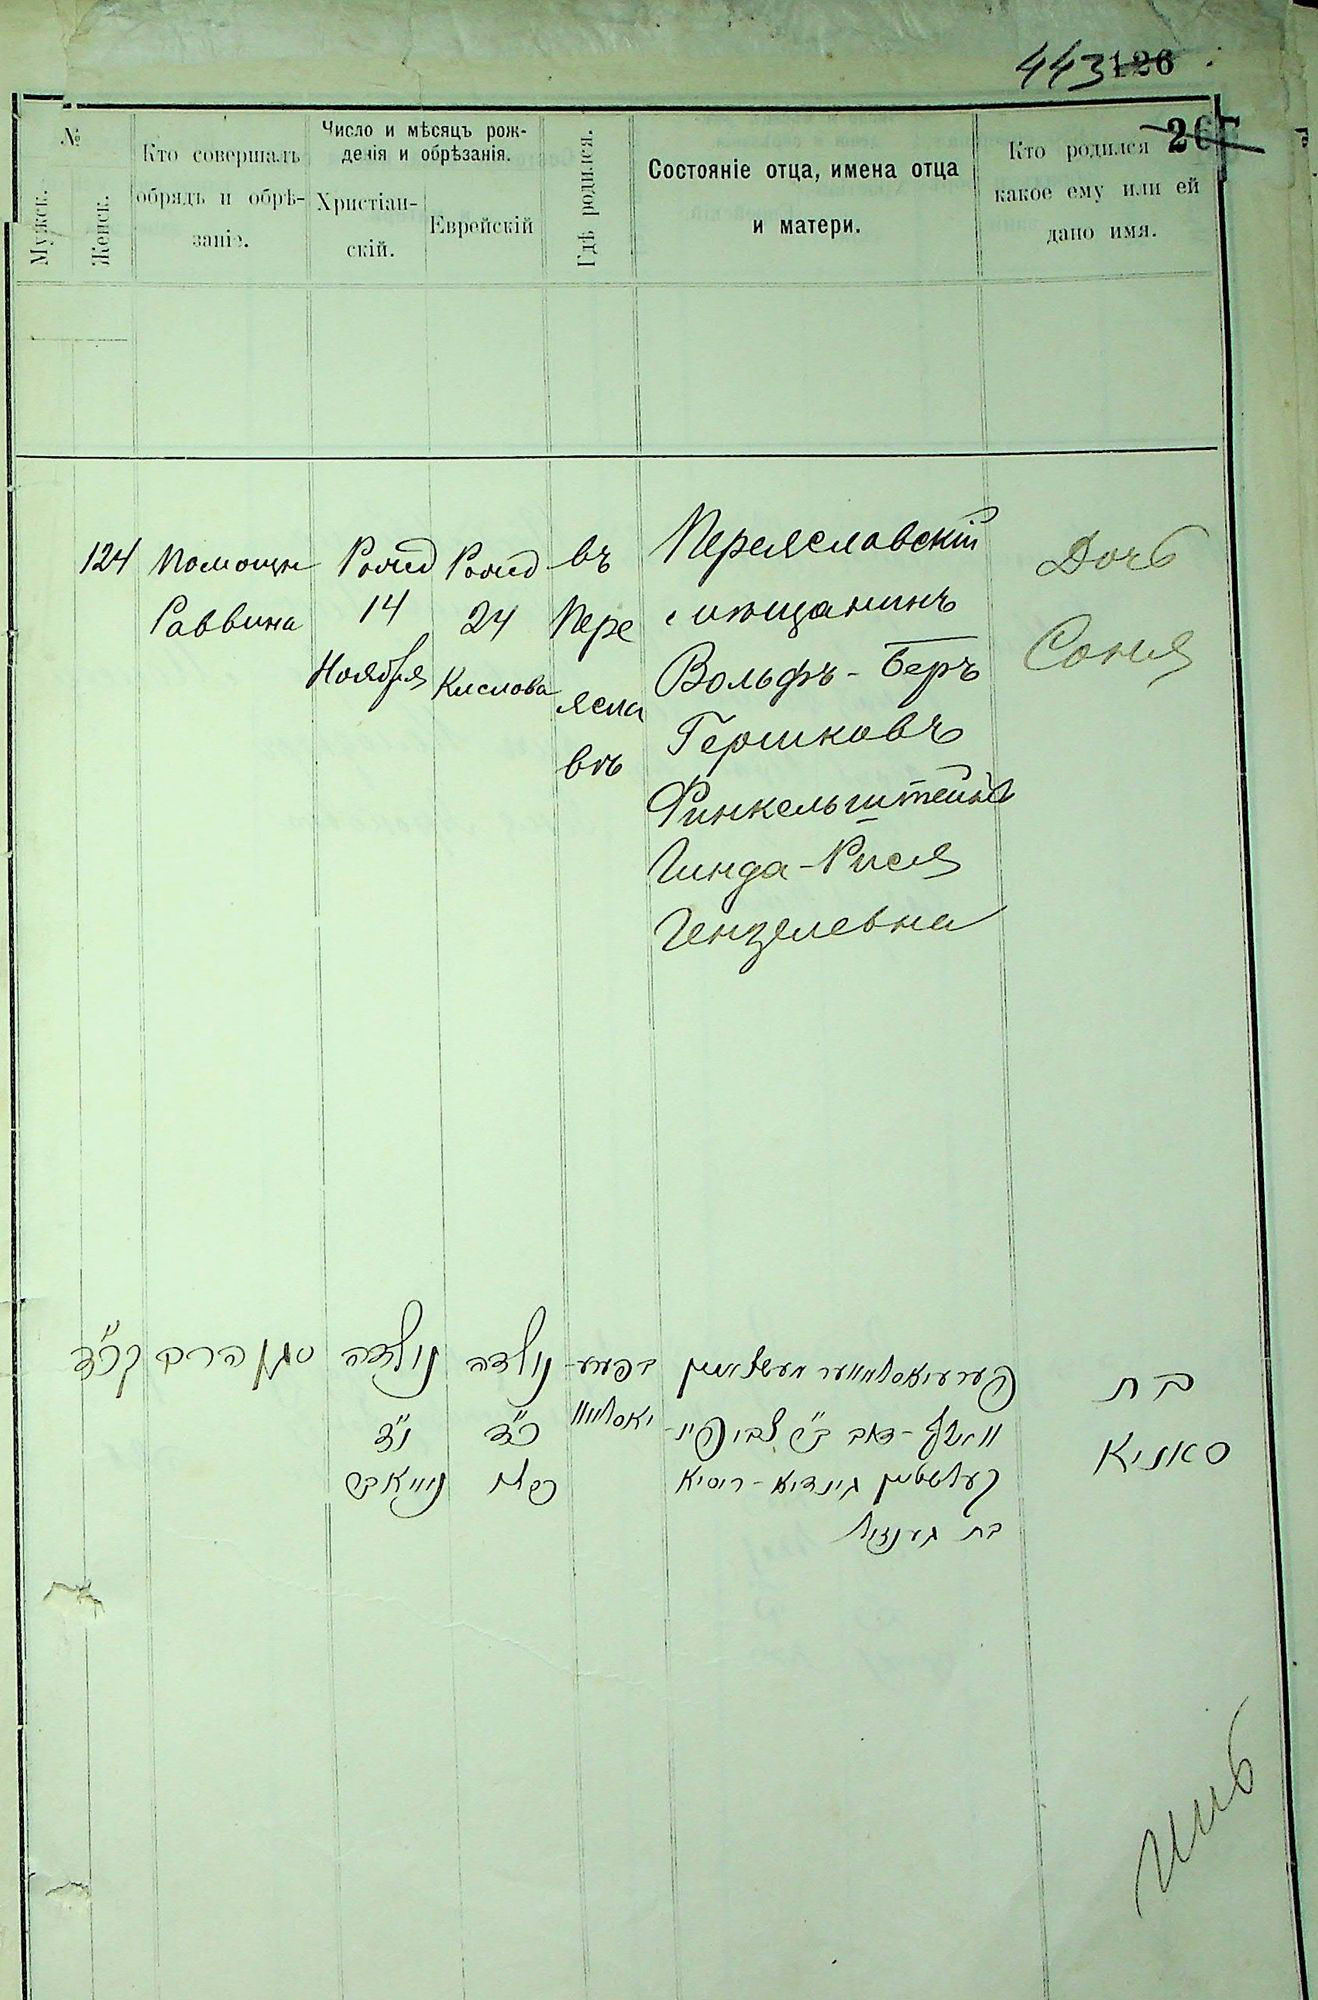 443 126
265
№
Мужск.
Женск.
Кто совершалъ
обрядъ и обрѣ-
заніе.
Число и мѣсяцъ рож-
денія и обрѣзанія.
Христіан-
скій.
Еврейскій
Гдѣ родился.
Состояніе отца, имена отца
и матери.
Кто родился
какое ему или ей
дано имя.
124
Помощн
Раввина
Рожд
14
Ноября
Рожд
24
Кислова
въ
Пере
ясла
вѣ
Переяславскій
мѣщанинъ
Вольфъ-Беръ
Гершковъ
Финкельштейнъ
Гинда-Рися
Гензелевна
Дочь
Соня
קכ״ד
סגן הרב
נולדה
י״ד
נאיאבר
נולדה
כ״ד
כסלו
בפערע-
יאסלאוו
דוב
גינדיא - ריסיא
בת גענזיל
בת
סאניא